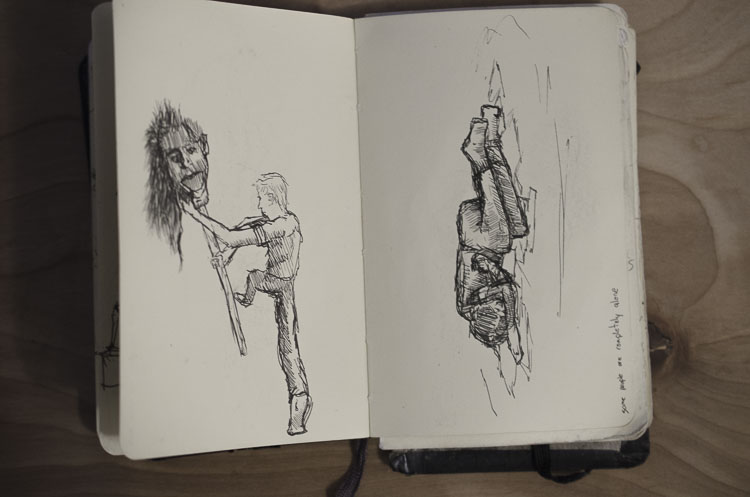 some people are completely alone